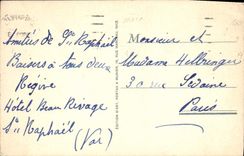 Amitiés de St Raphaël
Baisers à tous deux
Régine
Hôtel Beau Rivage
St Raphaël
(Var)
Monsieur et
Madame Hellbringer
30 rue Sedaine
Paris